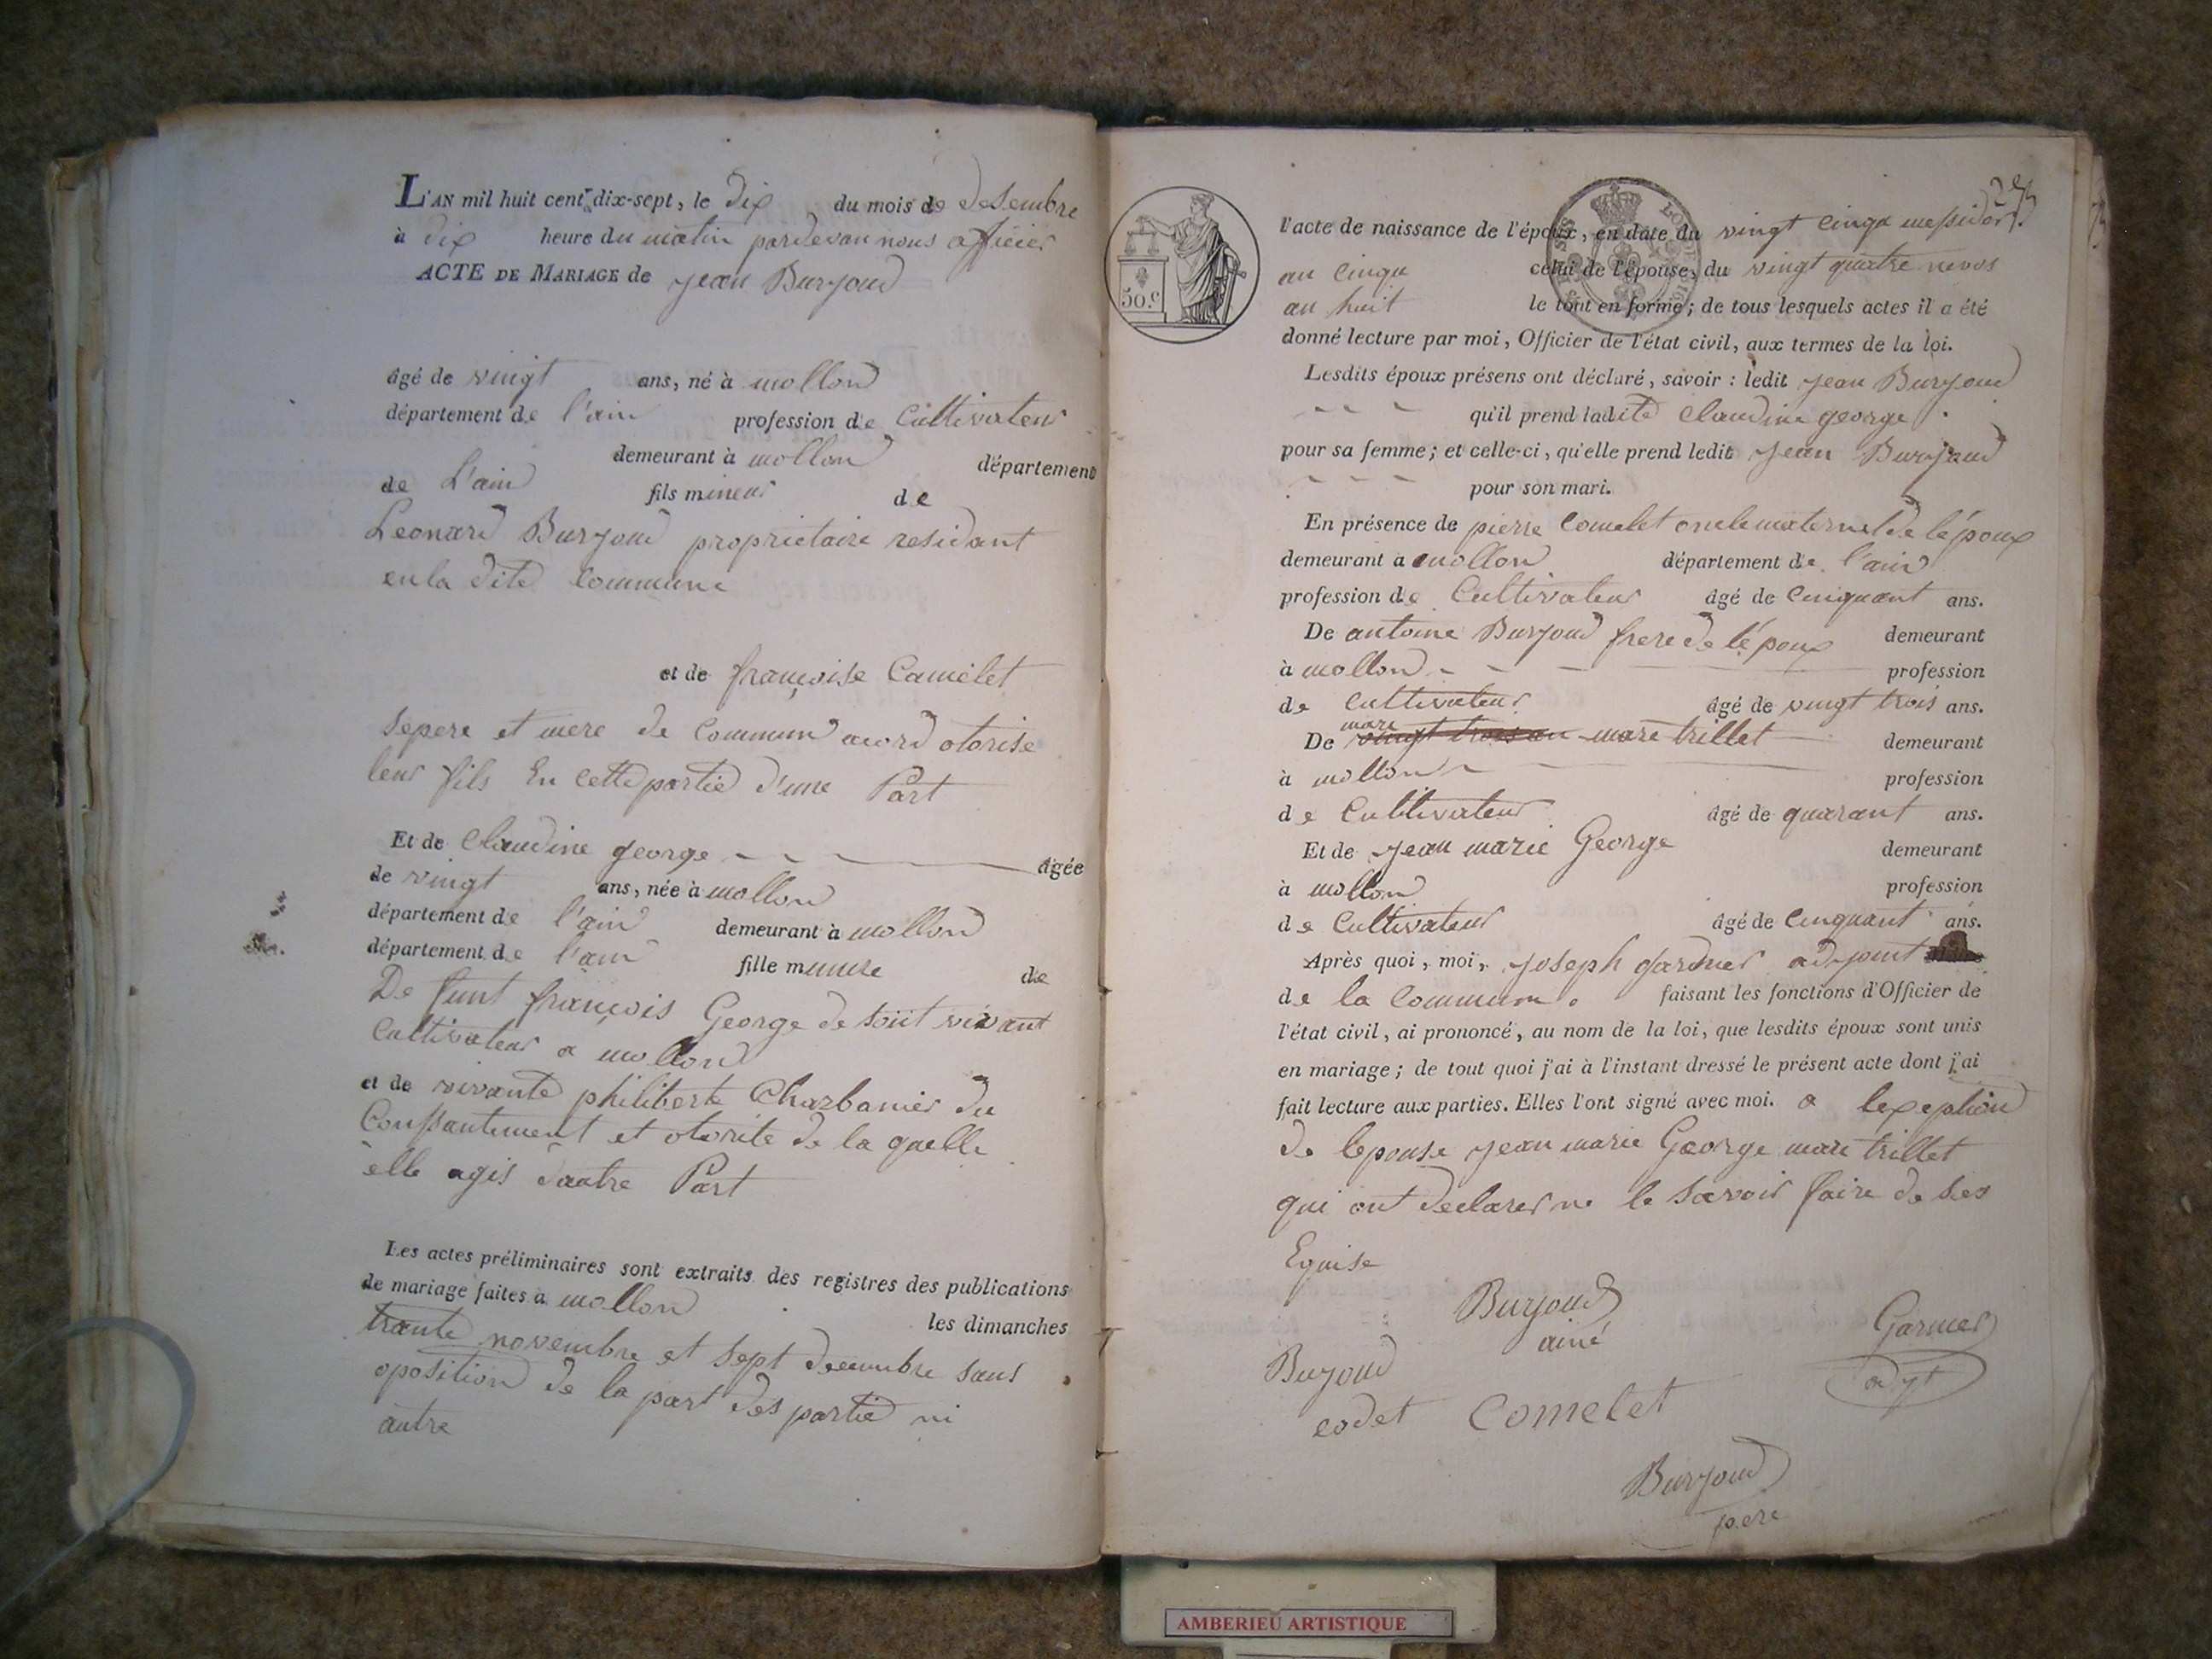 L'AN mil huit cent dix-sept, le dix du mois de desembre
à dix heure du matin pardevan nous officier
ACTE DE MARIAGE de jean Burjoud
âgé de vingt ans, né à mollon
département de l'ain profession de Cultivateur
demeurant à mollon département
de L'ain fils mineur de
Leonard Burjoud proprietaire residant
en la dite Commune
et de françoise Camelet
sepere et mere de Commun acord otorise
leur fils En cette partie d'une Part
Et de Claudine george âgée
de vingt ans, née à mollon
département de l'ain demeurant à mollon
département de l'ain fille mineure de
De funt françois George de soüt vivant
Cultivateur a mollon
et de vivante philiberte Charbanier du
Conssantement et otorite de la quelle
elle agis dautre Part
Les actes préliminaires sont extraits des registres des publications
de mariage faites à mollon les dimanches
trante novembre et sept decembre sans
oposition de la part des partie ni
autre
50.c
l'acte de naissance de l'époux, en date du vingt cinqx messidor
an cinqu celui de l'épouse, du vingt quatre nevos
an huit le tout en forme; de tous lesquels actes il a été
donné lecture par moi, Officier de l'état civil, aux termes de la loi.
Lesdits époux présens ont déclaré, savoir: ledit jean Burjoud
qu'il prend ladite Claudine george
pour sa femme; et celle-ci, qu'elle prend ledit jean Burjoud
pour son mari.
En présence de pierre Comelet oncle maternel de lépoux
demeurant à mollon département de l'ain
profession de Cultivateur âgé de Cinquant ans.
De antoine Burjoud frere de lépoux demeurant
à mollon profession
de Cultivateur âgé de vingt trois ans.
mare
De vingt trois an mare trillet demeurant
à mollon profession
de Cultivateur âgé de quarant ans.
Et de jean marie George demeurant
à mollon profession
de Cultivateur âgé de Cinquant ans.
Après quoi, moi, joseph garnier adjoint
de la Commune faisant les fonctions d'Officier de
l'état civil, ai prononcé, au nom de la loi, que lesdits époux sont unis
en mariage; de tout quoi j'ai à l'instant dressé le présent acte dont j'ai
fait lecture aux parties. Elles l'ont signé avec moi. a lexeption
de lepouse jean marie George mare trillet
qui ont declarer ne le savoir faire de ses
Equise
Burjoud
ainé
Garnier
adjt
Burjoud
codet Comelet
Burjoud
pere
AMBERIEU ARTISTIQUE